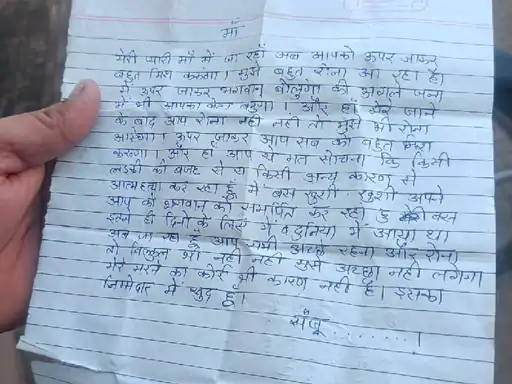 माँ
मेरी प्यारी माँ में जा रहाँ अब आपको ऊपर जाकर
बहुत मिस करूंगा। मुझे बहुत रोना आ रहा है।
में ऊपर जाकर भगवान बोलुगा की अगले जन्म
में भी आपका बेटा बनुगा। और हाँ मेरे जाने
के बाद आप रोना नही नही तो मुझे भी रोना
आएगा। ऊपर जाकर आप सब को बहुत मिस
करूगा और हां आप ये मत सोचना कि किसी
लडकी की वजह से या किसी अन्य कारण से
आत्महत्या कर रहा हूँ में बस खुशी-खुशी अपने
आप को भगवान को समर्पित कर रहा हु बस
इतने ही दिनो के लिए में दुनिया में आया था
अब जा रहा हूँ आप सभी अच्छे रहना और रोना
तो बिल्कुल भी नही नही मुझे अच्छा नही लगेगा
मेरे मरने का कोई भी कारण नही है। इसका
जिम्मेदार में खुद हूँ।
संजू........।